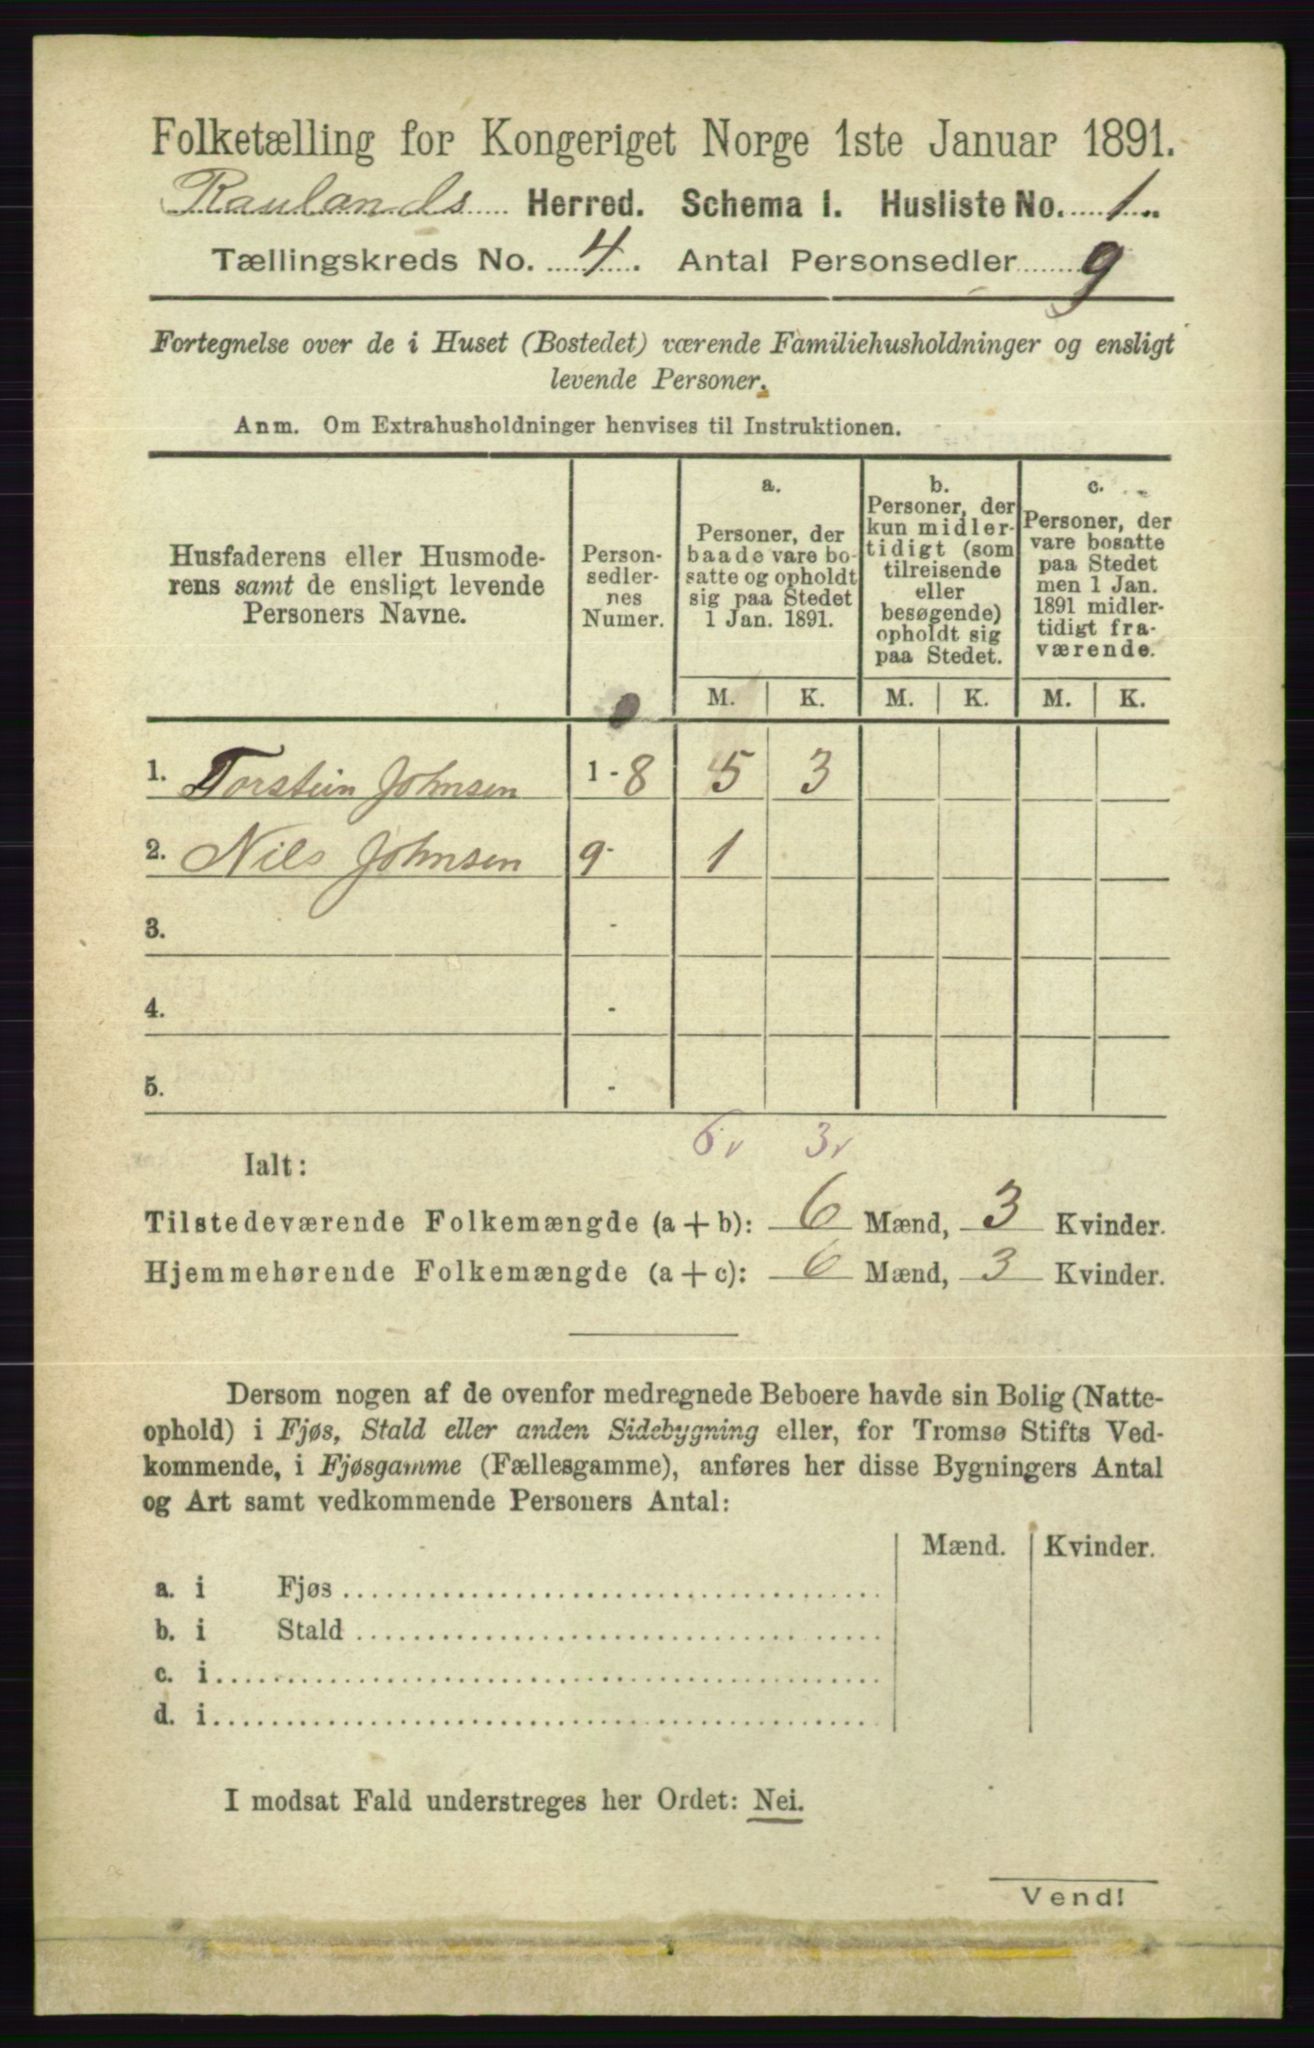 Folketælling for Kongeriget Norge 1ste Januar 1891.
Raulands Herred. Schema I. Husliste No. 1
Tællingskreds No. 4. Antal Personsedler 9
Fortegnelse over de i Huset (Bostedet) værende Familiehusholdninger og ensligt
levende Personer.
Anm. Om Extrahusholdninger henvises til Instruktionen.
Husfaderens eller Husmode-
rens samt de ensligt levende
Personers Navne.
Person-
sedler-
nes
Numer.
a.
Personer, der
baade vare bo-
satte og opholdt
sig paa Stedet
1 Jan. 1891.
b.
Personer, der
kun midler-
tidigt (som
tilreisende
eller
besøgende)
opholdt sig
paa Stedet.
c.
Personer, der
vare bosatte
paa Stedet
men 1 Jan.
1891 midler-
tidigt fra-
værende.
M. K. M. K. M. K.
1. Torstein Johnsen 1 - 8 5 3
2. Nils Johnsen 9 - 1
3. -
4. -
5. -
6 v 3 v
Ialt:
Tilstedeværende Folkemængde (a + b): 6 Mænd, 3 Kvinder.
Hjemmehørende Folkemængde (a + c): 6 Mænd, 3 Kvinder.
Dersom nogen af de ovenfor medregnede Beboere havde sin Bolig (Natte-
ophold) i Fjøs, Stald eller anden Sidebygning eller, for Tromsø Stifts Ved-
kommende, i Fjøsgamme (Fællesgamme), anføres her disse Bygningers Antal
og Art samt vedkommende Personers Antal:
Mænd. Kvinder.
a. i Fjøs
b. i Stald
c. i
d. i
I modsat Fald understreges her Ordet: Nei.
Vend!